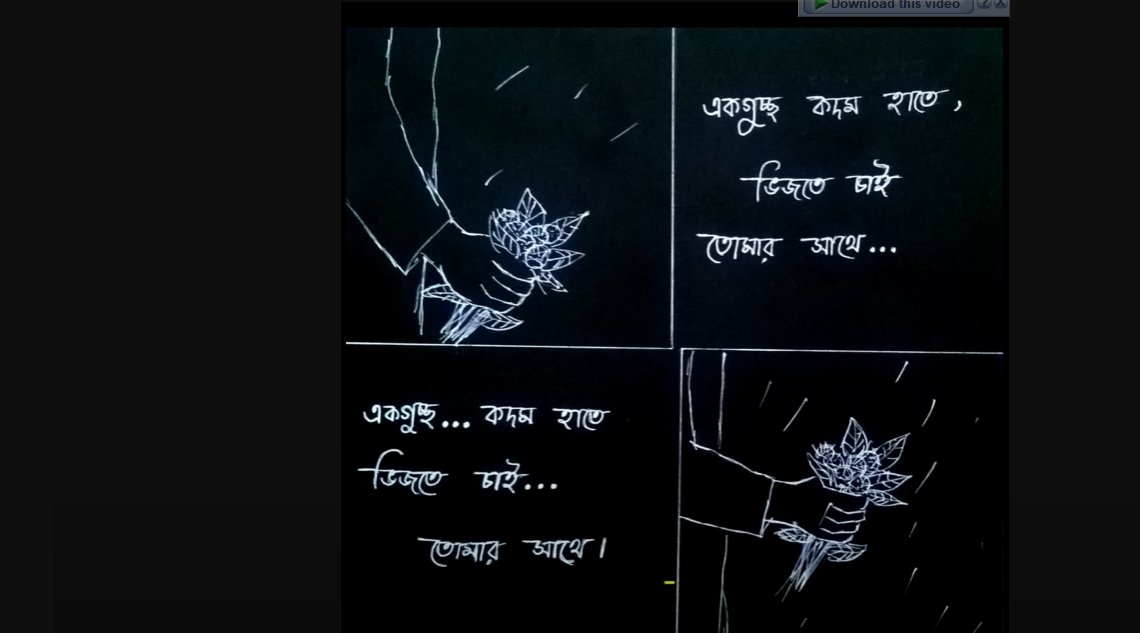 Download this video ? X
একগুচ্ছ কদম হাতে,
ভিজতে চাই
তোমার সাথে...
একগুচ্ছ... কদম হাতে
ভিজতে চাই...
তোমার সাথে।